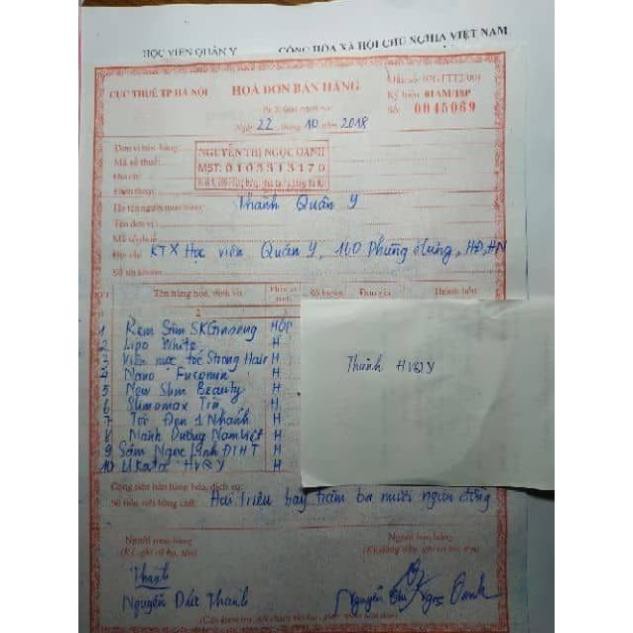 HỌC VIỆN QUÂN Y CỘNG HÒA XÃ HỘI CHỦ NGHĨA VIỆT NAM
CỤC THUẾ TP HÀ NỘI
HOÁ ĐƠN BÁN HÀNG
Ký hiệu: 01AM/18P
Số: 0045069
Ngày 22 tháng 10 năm 2018
Đơn vị bán hàng:
NGUYỄN THỊ NGỌC OANH
Mã số thuế:
MST: 0105313170
Địa chỉ:
Điện thoại:
Họ tên người mua hàng: Thành Quân Y
Tên đơn vị:
Mã số thuế:
Địa chỉ: KTX Học viện Quân Y, 160 Phùng Hưng, HĐ, HN
Số tài khoản:
Tên hàng hóa, dịch vụ Số lượng Đơn giá Thành tiền
2
1 Kem Sâm SKGinseng HỘP
2 Lipo White H
3 Viên mọc tóc Strong Hair H
4 Nano Fucomin H
5 New Slim Beauty H
6 Slimomax Trà H
7 Tỏi Đen 1 Nhánh H
8 Mãnh Dương Nam Việt H
9 Sâm Ngọc Linh H
10 HVQY H
Thành HVQY
Cộng tiền bán hàng hóa, dịch vụ:
Số tiền viết bằng chữ: Hai triệu bảy trăm ba mươi ngàn đồng
Người mua hàng Người bán hàng
(Ký, ghi rõ họ, tên)
Thanh
Nguyễn Đức Thanh Nguyễn Thị Ngọc Oanh